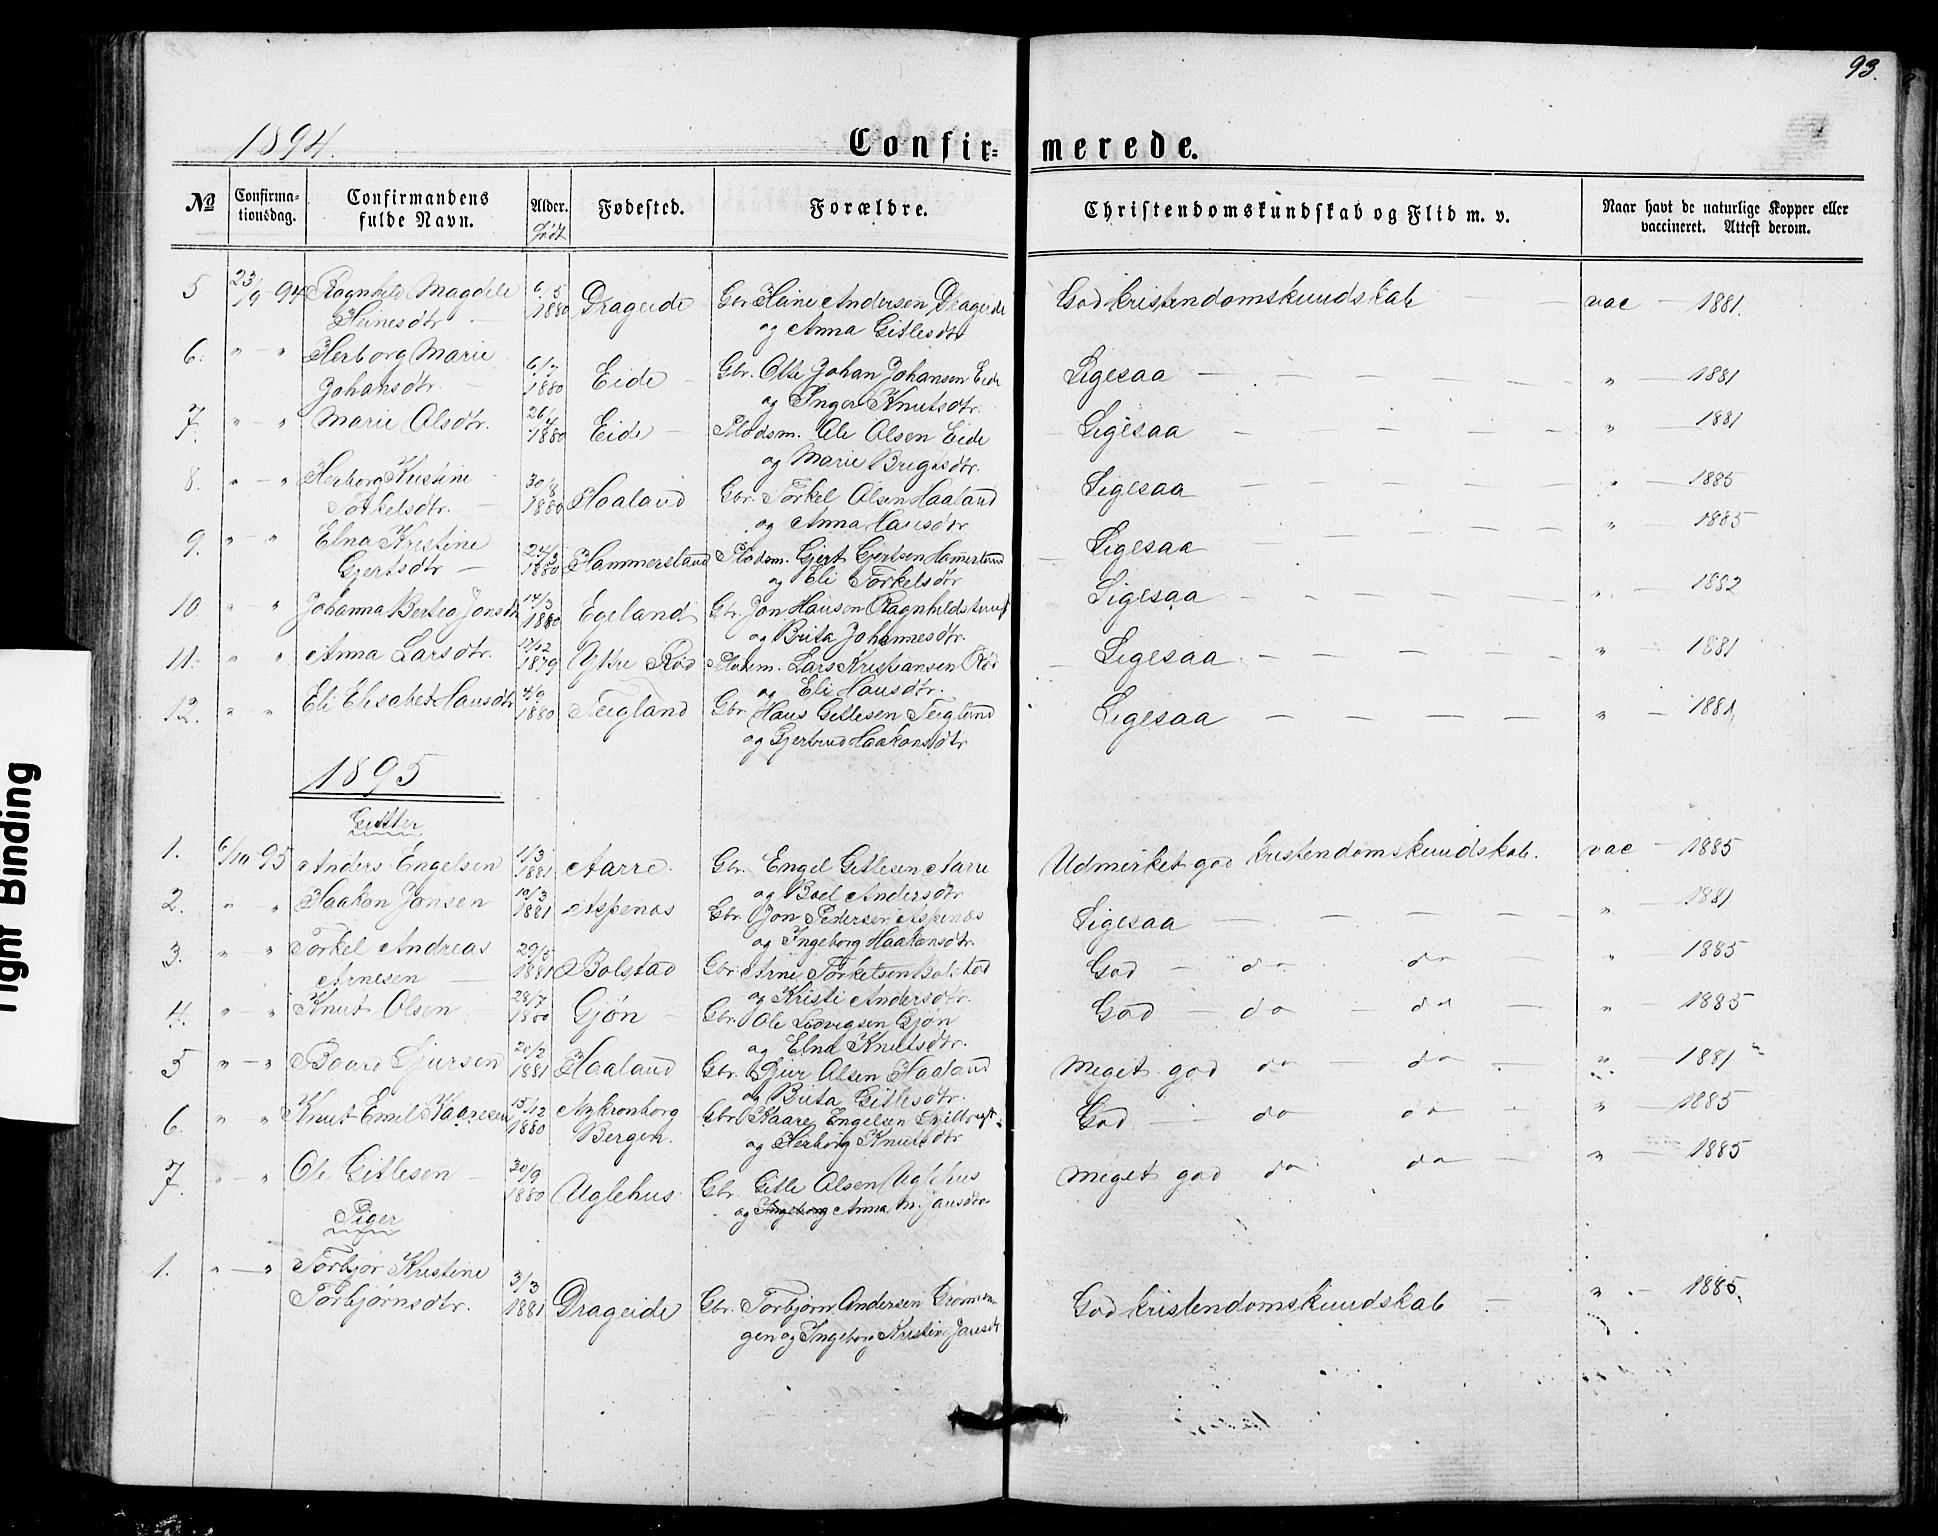 93.
1894.
Confirmerede.
No
Confirmationsdag.
Confirmandens fulde Navn.
Alder.
Født
Fødested.
Forældre.
Christendomskundskab og Flid m. v.
Naar havt de naturlige Kopper eller vaccineret. Attest derom.
5 23/9-94 Ragnhild Magdele 6/5 1880 Drageide Gbr. Heine Andersen Drageide God kristendomskundskab vac - 1881.
Heinesdtr. og Anna Gitlesdtr
6. " - " Herborg Marie 6/7 1880 Eide Gbr. Johan Johansen Eide Ligesaa " 1881
Johansdtr. og Inger Knutsdtr.
7. " - " Marie Olsdtr. 26/4 1880 Eide - Pladsm. Ole Olsen Eide Ligesaa " 1881
og Marie Brigtsdtr.
8. " - " Herborg Kristine 30/8 1880 Haaland Gbr. Torkel Olsen Haaland Ligesaa " 1885
Torkelsdtr. og Anna Hansdtr
9. " - " Elna Kristine 24/3 1880 Hammersland Pladsm. Gjert Gjertsen Ligesaa " 1885
Gjertsdtr og Eli Torkelsdtr
10. " " Johanna Bertea Jonsdtr 14/3 1880 Egeland Gbr. Jon Hansen Ligesaa " 1882
og Brita Johannesdtr.
11. " " Anna Larsdtr. 17/12 1879 Ytre Rød Pladsm. Lars Kristiansen Rød Ligesaa " 1881
og Eli Hansdtr.
12. " " Eli Elisabet Hansdtr 4/9 1880 Teigland Gbr. Hans Gitlesen Teigland Ligesaa " 1881
og Gjertrud Haakonsdtr
1895
Gutter
1. 6/10 95 Anders Engelsen 1/3 1881 Aarre. Gbr. Engel Gitlesen Aarre Udmerket god kristendomskundskab. vac - 1885
og Boel Andersdtr
2. " - " Haakon Jonsen 10/3 1881 Aspenæs Gbr. Jon Pedersen Aspenæs Ligesaa " 1881
og Ingeborg Haakonsdtr.
3. " - " Torkel Andreas 29/5 1881 Bolstad Gbr. Arne Torkelsen Bolstad God - do - do - " 1885
Arnesen og Kristi Andersdtr.
4. " - " Knut Olsen 28/7 1880 Gjøn - Gbr. Ole Ludvigsen Gjøn God - do - do - " 1885
og Elna Knutsdtr.
5 " - " Baard Sjursen 20/2 1881 Haaland Gbr. Sjur Olsen Haaland Meget god do - do - " 1881
og Brita Gitlesdtr.
6. " " Knut Emil Kaaresen 15/12 1880 Nykronborg Gbr. Kaare Engelsen God - do do - " 1885
Bergen. og Herborg Knutsdtr
7. " - " Ole Gitlesen 30/9 1880 Uglehus. Gbr. Gitle Olsen Uglehus Meget god do do - " 1885
og Ingeborg Anna M. Jansdtr
Piger
1. " - " Torbjør Kristine 3/3 1881 Drageide Gbr. Torbjørn Andersen God kristendomskundskab - " - 1885.
Torbjørnsdtr. og Ingeborg Kristine Jansdtr
Tight Binding